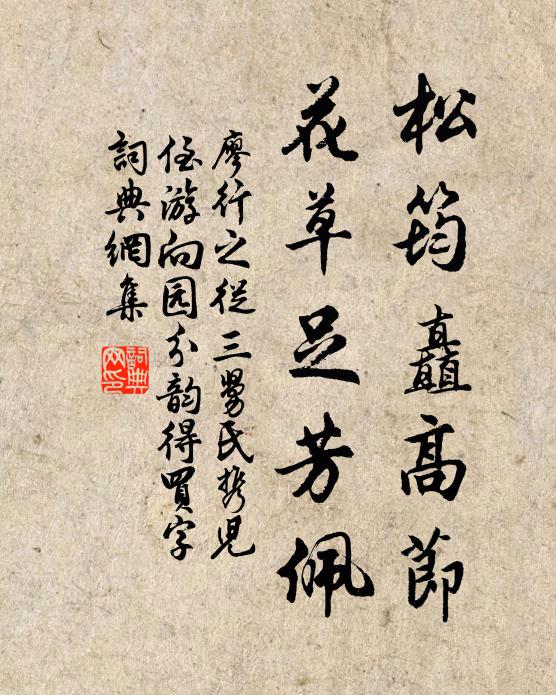 松筠矗高節
花草足芳佩
廖行之從三舅氏携兒
侄游向园分韵得買字
詞典網集
詞典网印